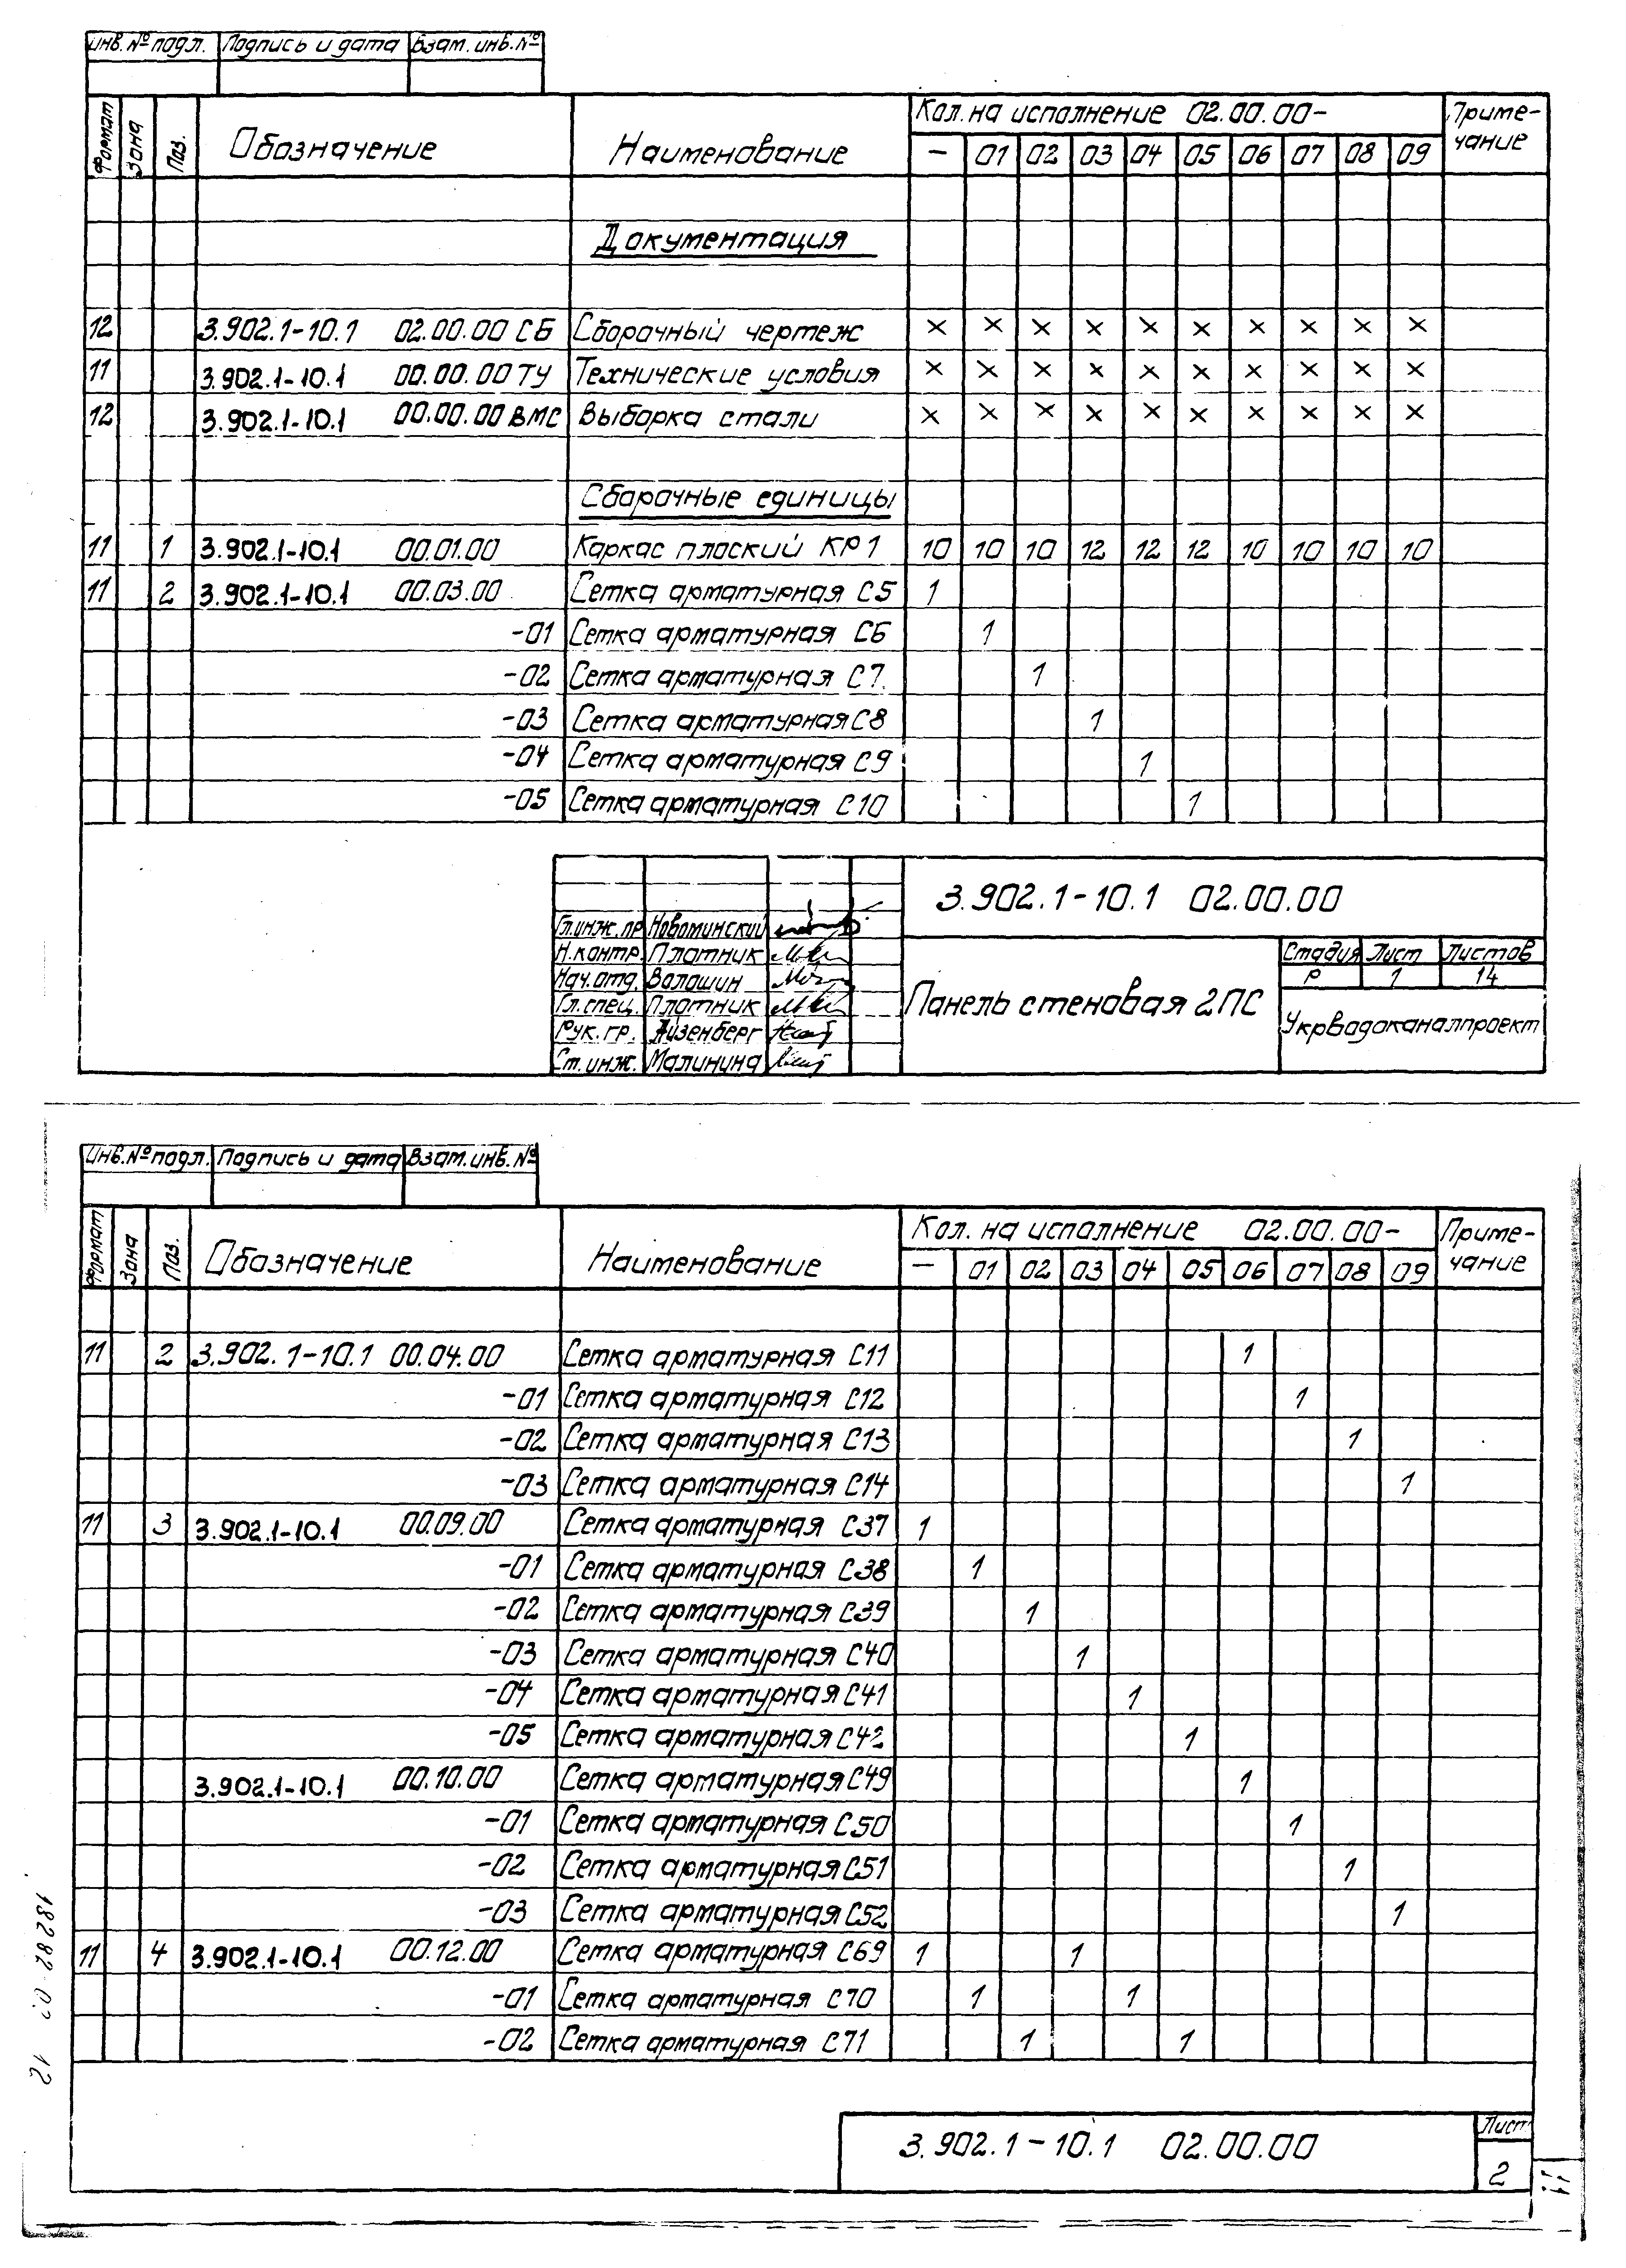 Инв.№ подл. Подпись и дата Взам. инв.№
Формат Зона Поз. Обозначение Наименование Кол. на исполнение 02.00.00- Приме-
чание
— 01 02 03 04 05 06 07 08 09
Документация
12 3.902.1-10.1 02.00.00 СБ Сборочный чертеж × × × × × × × × × ×
11 3.902.1-10.1 00.00.00 ТУ Технические условия × × × × × × × × × ×
12 3.902.1-10.1 00.00.00 ВМС Выборка стали × × × × × × × × × ×
Сборочные единицы
11 1 3.902.1-10.1 00.01.00 Каркас плоский КР1 10 10 10 12 12 12 10 10 10 10
11 2 3.902.1-10.1 00.03.00 Сетка арматурная С5 1
-01 Сетка арматурная С6 1
-02 Сетка арматурная С7 1
-03 Сетка арматурная С8 1
-04 Сетка арматурная С9 1
-05 Сетка арматурная С10 1
3.902.1-10.1 02.00.00
Гл.инж.пр Новоминский
Н.контр. Плотник
Нач.отд. Волошин
Гл.спец. Плотник
Рук.гр. Айзенберг
Ст.инж. Малинина
Панель стеновая 2ПС
Стадия Лист Листов
Р 1 14
Укрводоканалпроект
Инв.№ подл. Подпись и дата Взам. инв. №
Формат Зона Поз. Обозначение Наименование Кол. на исполнение 02.00.00- Приме-
чание
— 01 02 03 04 05 06 07 08 09
11 2 3.902.1-10.1 00.04.00 Сетка арматурная С11 1
-01 Сетка арматурная С12 1
-02 Сетка арматурная С13 1
-03 Сетка арматурная С14 1
11 3 3.902.1-10.1 00.09.00 Сетка арматурная С37 1
-01 Сетка арматурная С38 1
-02 Сетка арматурная С39 1
-03 Сетка арматурная С40 1
-04 Сетка арматурная С41 1
-05 Сетка арматурная С42 1
3.902.1-10.1 00.10.00 Сетка арматурная С49 1
-01 Сетка арматурная С50 1
-02 Сетка арматурная С51 1
-03 Сетка арматурная С52 1
11 4 3.902.1-10.1 00.12.00 Сетка арматурная С69 1 1
-01 Сетка арматурная С70 1 1
-02 Сетка арматурная С71 1 1
3.902.1-10.1 02.00.00
Лист
2
11
12